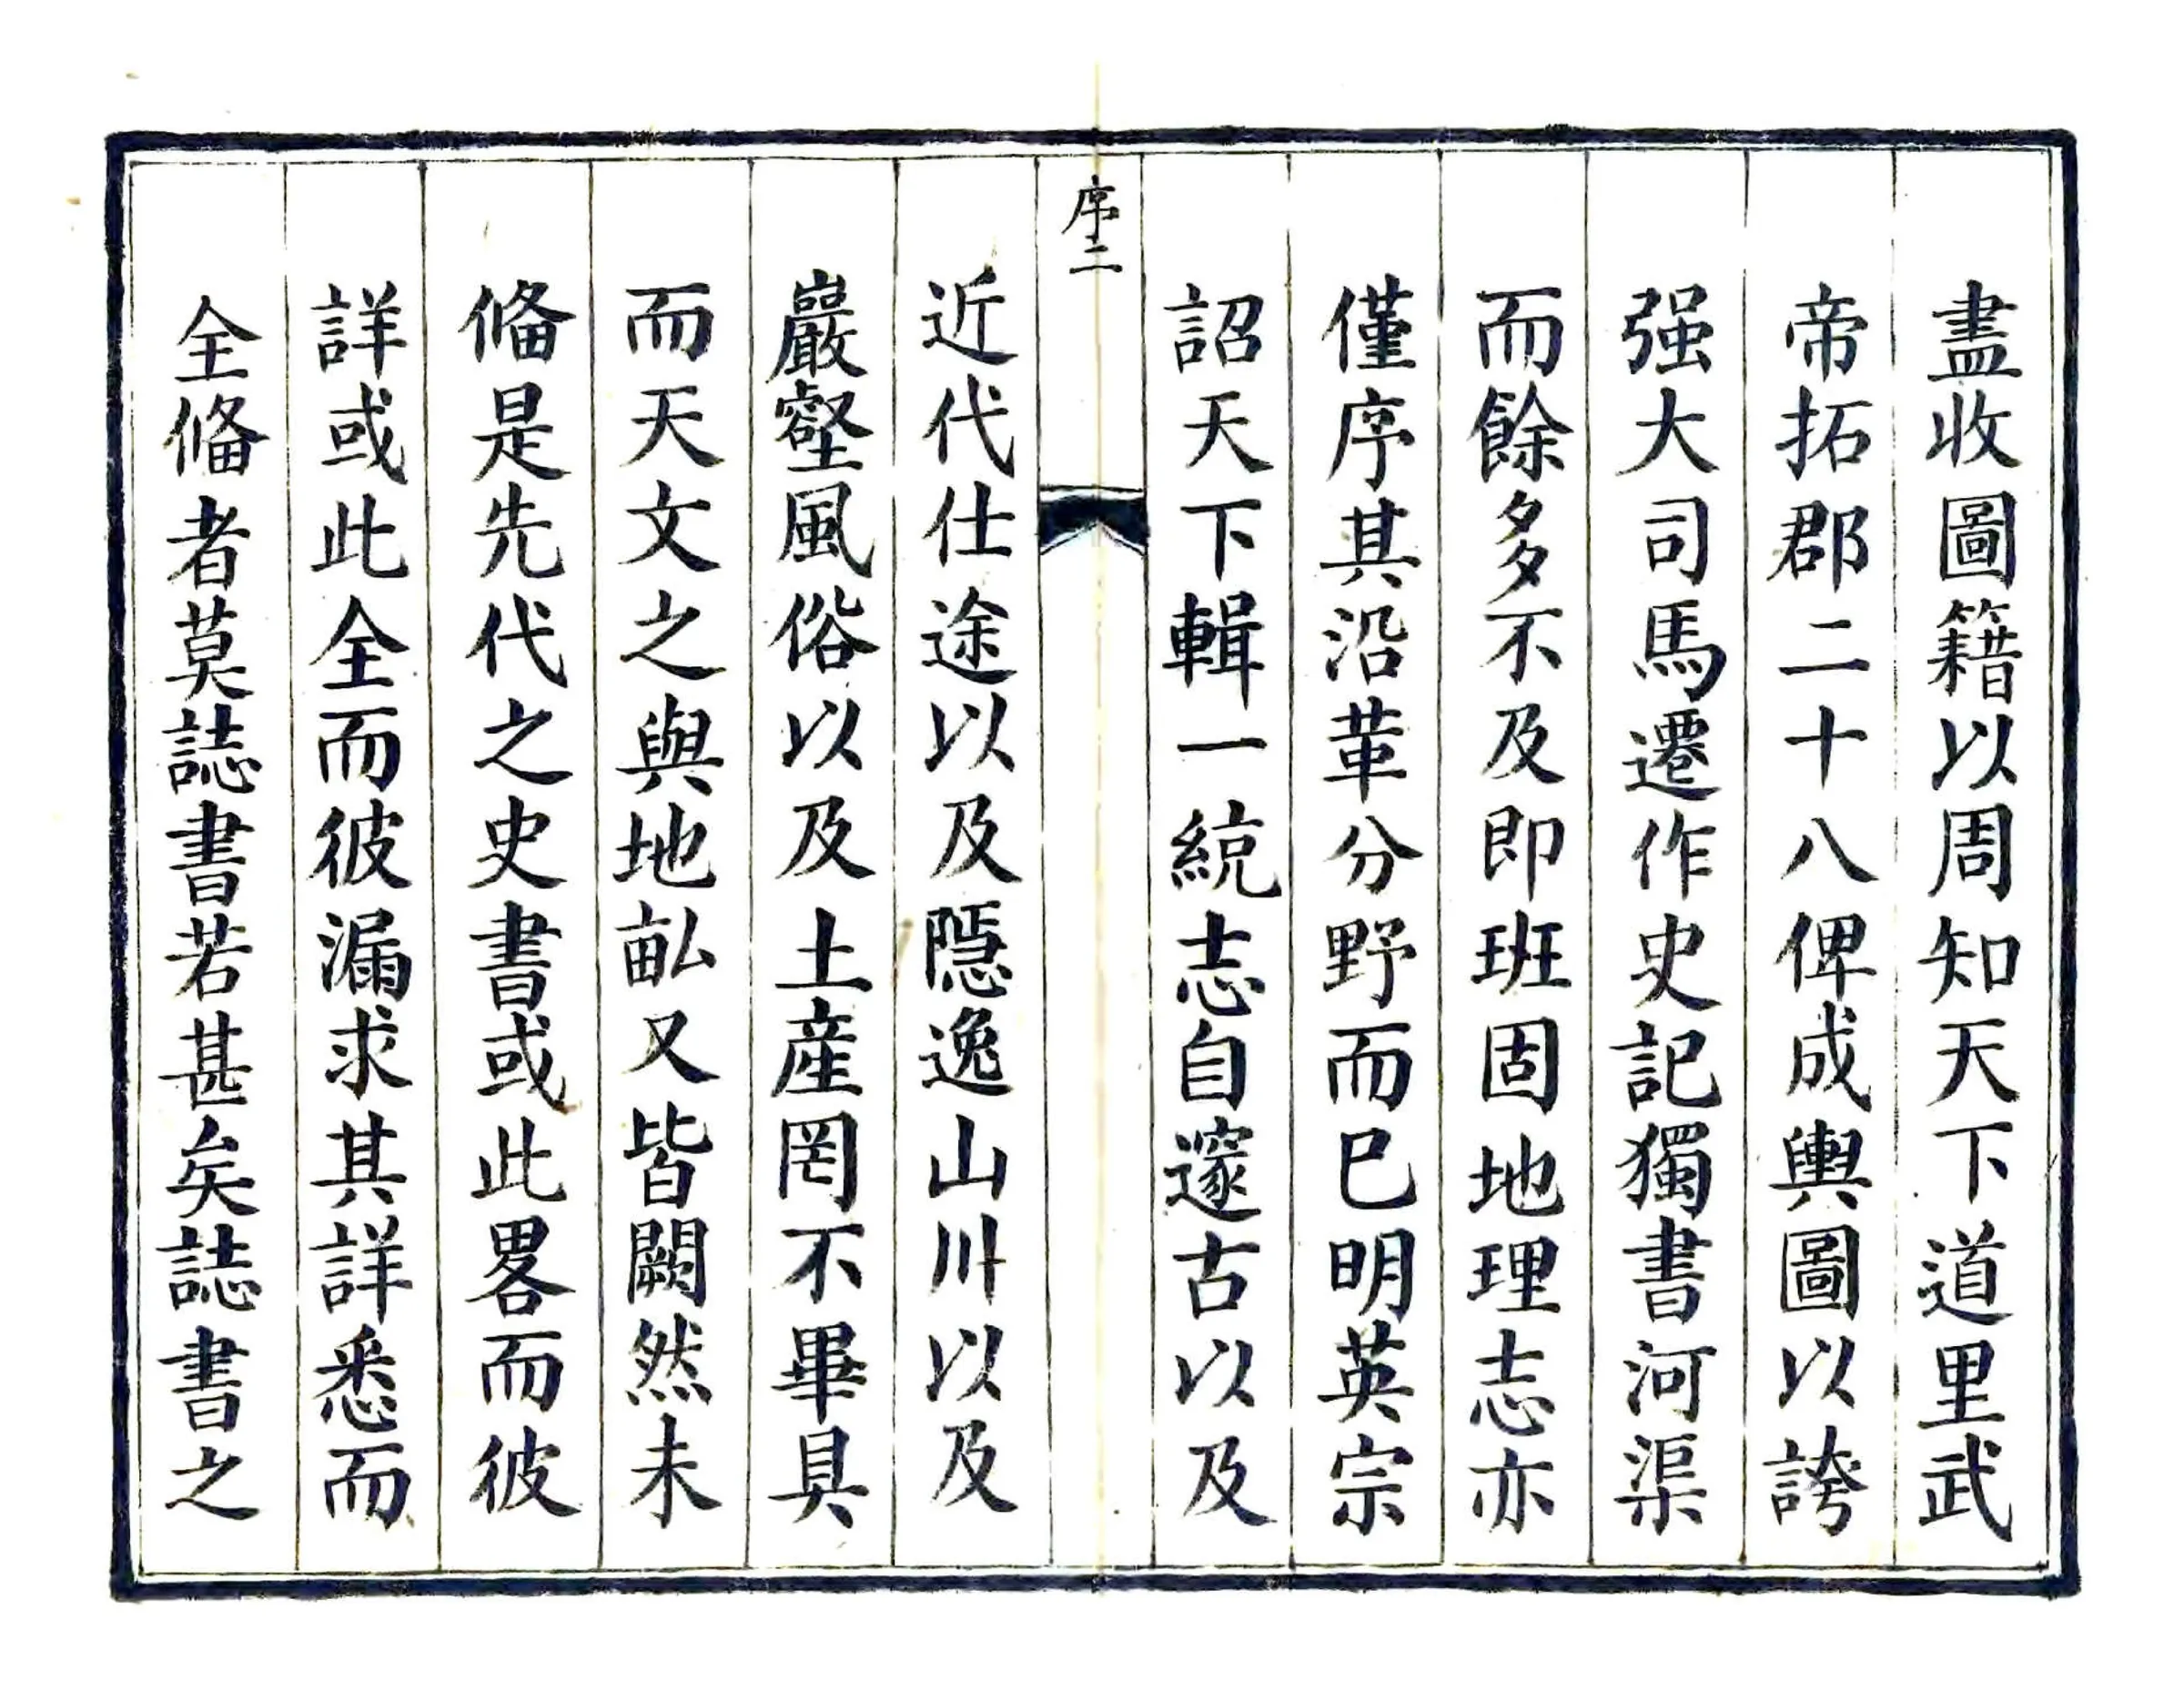 盡收圖籍以周知天下道里武
帝拓郡二十八俾成輿圖以誇
强大司馬遷作史記獨書河渠
而餘多不及即班固地理志亦
僅序其沿革分野而已明英宗
詔天下輯一統志自邃古以及
序二
近代仕途以及隱逸山川以及
巖壑風俗以及土產罔不畢具
而天文之與地畝又皆闕然未
偹是先代之史書或此畧而彼
詳或此全而彼漏求其詳悉而
全偹者莫誌書若甚矣誌書之